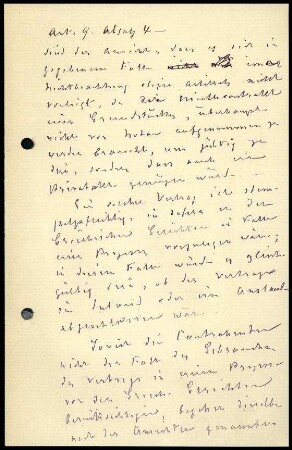 Art. 9. Absatz 4 –
sind der Ansicht, dass es sich in
gegebenem Falle nicht um
Nichtbeachtung obigen Artikels nicht
, da ein
eines Grundstückes, überhaupt
nicht vor Notar aufgenommen zu
werden braucht, um gültig zu
sein, sondern dass auch ein
Privatakt genügen würde –
Ein solcher Vertrag ist stem-
pelpflichtig, in sofern er den
Gerichten im Falle
eines Prozesses vorzulegen wäre;
in diesem Falle würde es gleich-
gültig sein, ob der Vertrag
im Inland oder im Ausland
abgeschlossen wäre.
Sowie die Contrahenten
nicht den Fall des Gebrauches
des Vertrags in einem Prozesse
vor den Gerichten
berücksichtigen, dieselben
nach der Ansicht genannten